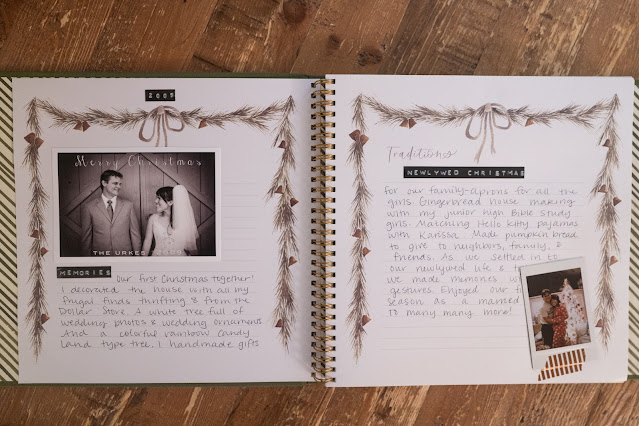 2009
Merry Christmas
THE URKES 2009
MEMORIES our first Christmas together!
I decorated the house with all my
frugal finds thrifting & from the
Dollar Store. A white tree full of
wedding photos & wedding ornaments.
And a colorful rainbow candy
Land type tree. I handmade gifts
Traditions
NEWLYWED CHRISTMAS
for our family-aprons for all the
girls. Gingerbread house making
with my junior high Bible study
girls. Matching Hello Kitty pajamas
with Karissa. Made pumpkin bread
to give to neighbors, family, &
friends. As we settled in to
our newlywed life &
we made memories
gestures. Enjoyed our
season as a married
to many many more!